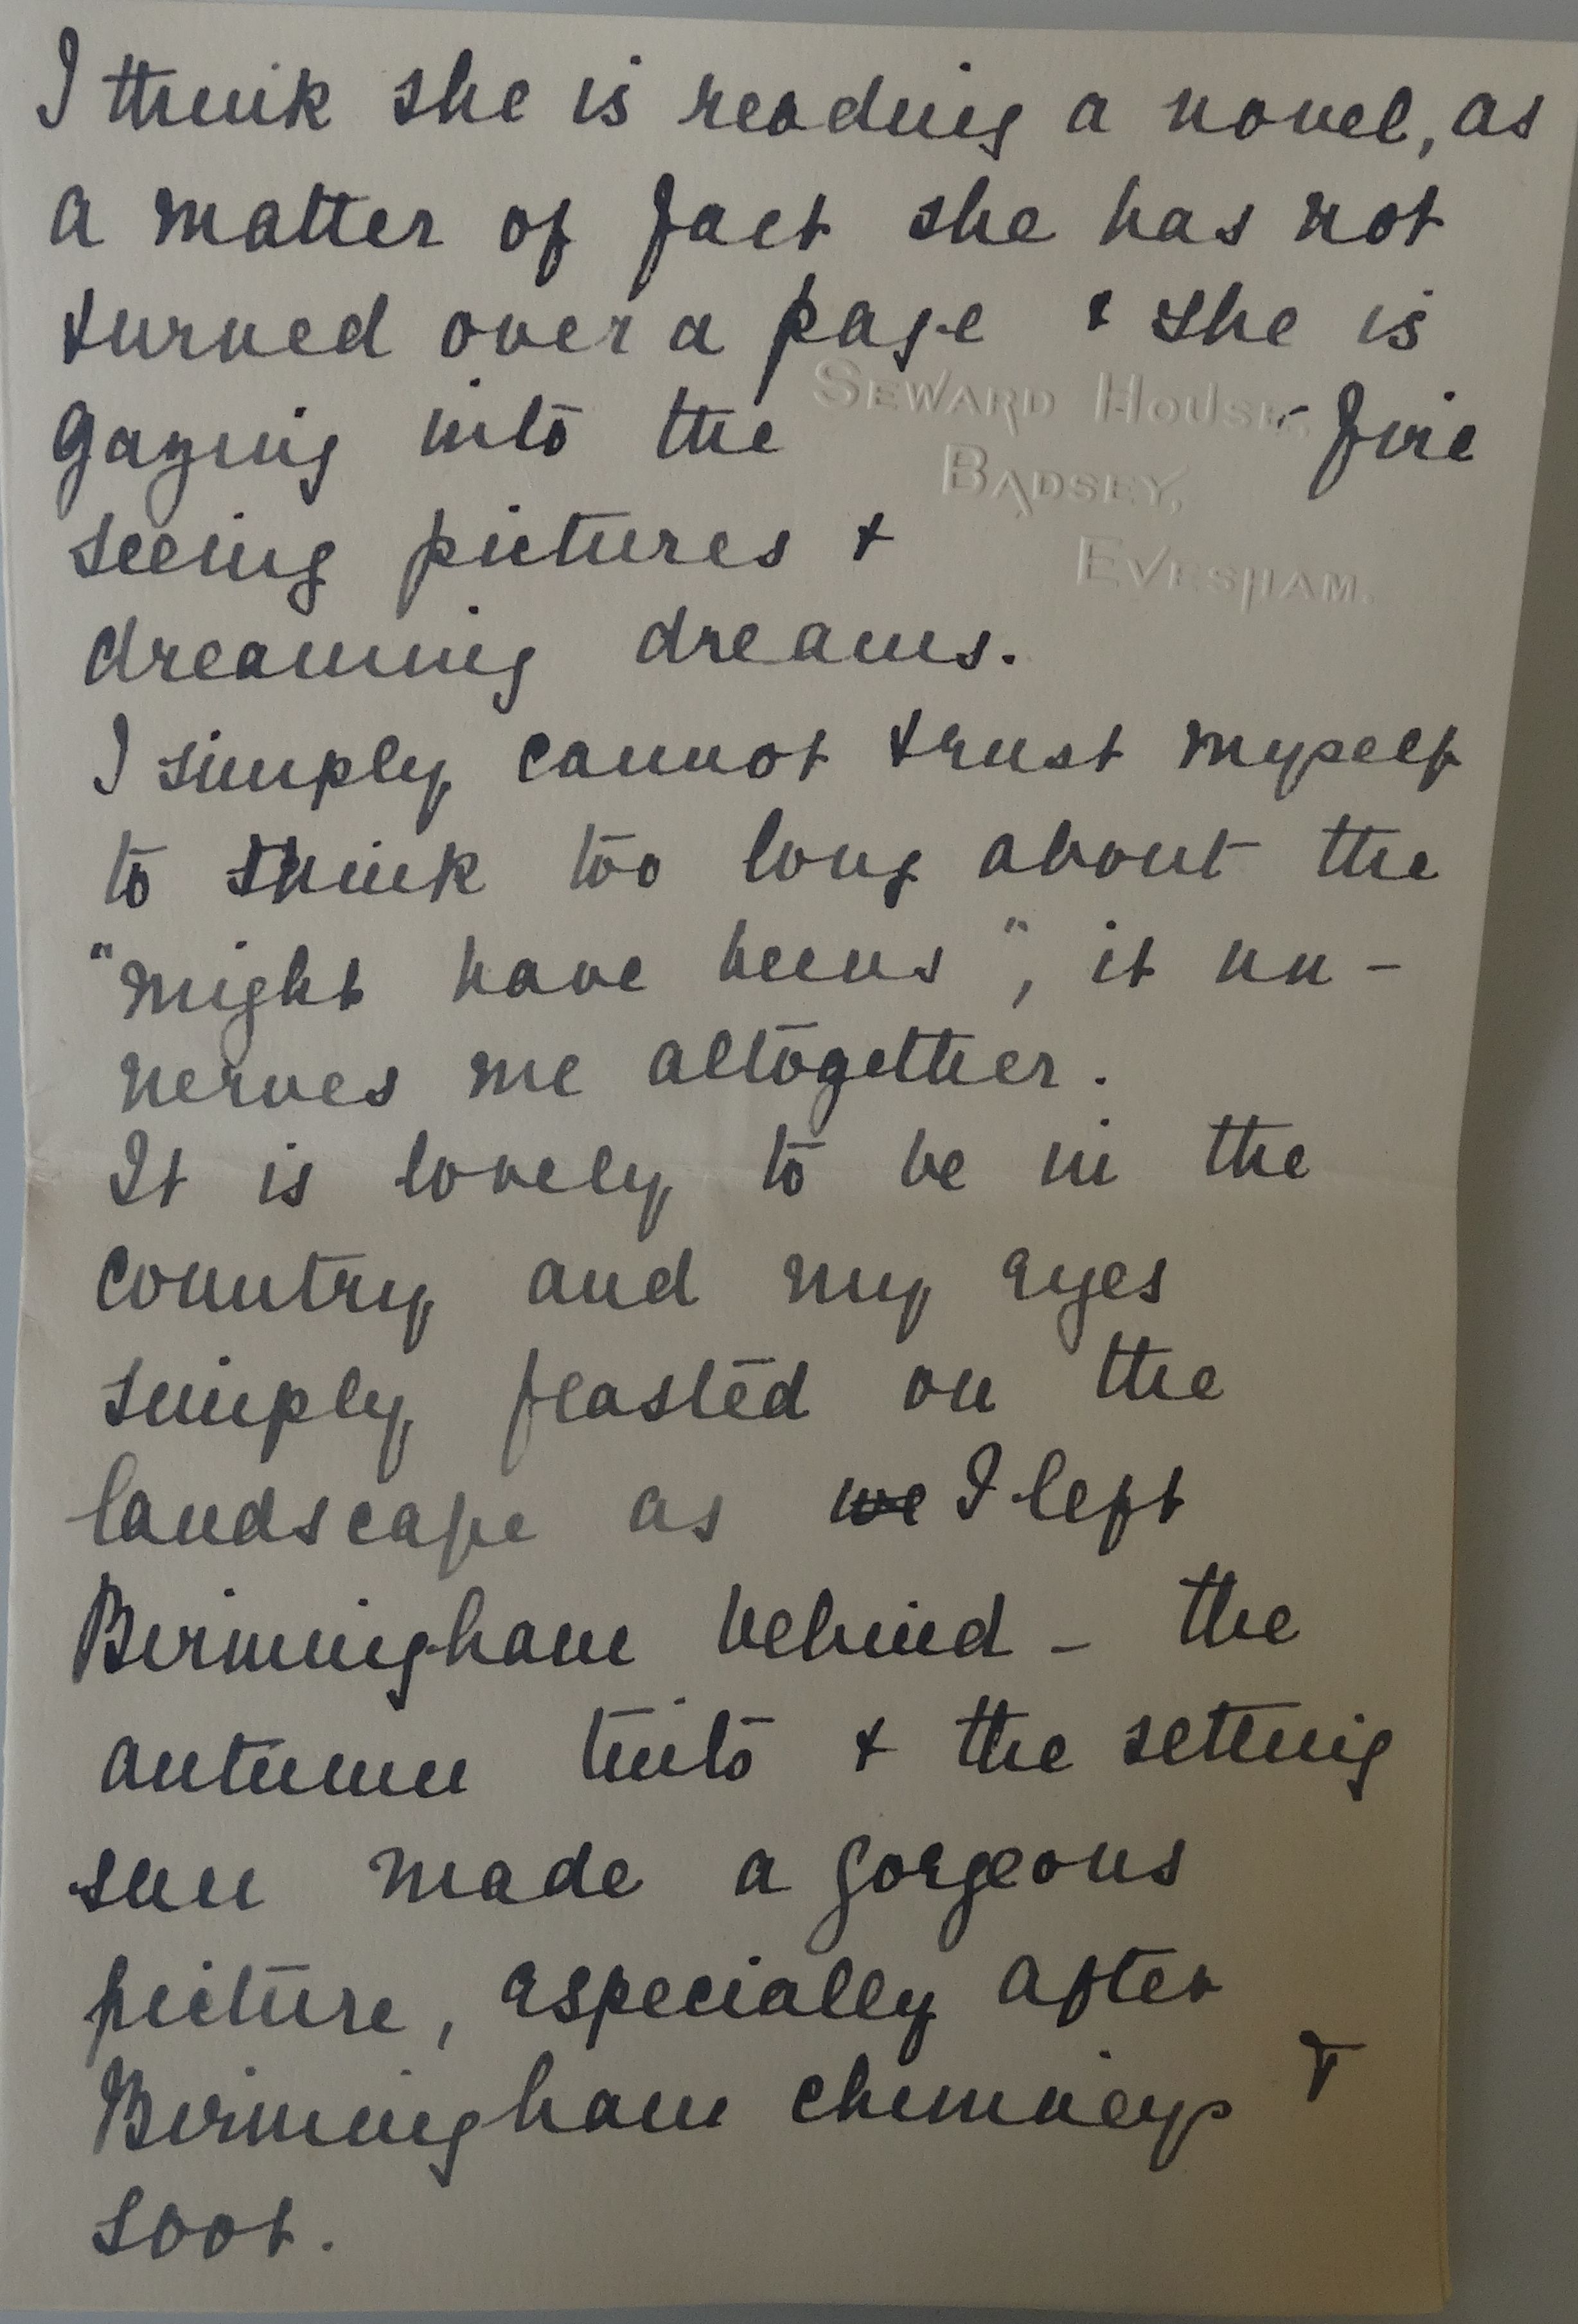 I think she is reading a novel, as
a matter of fact she has not
turned over a page & she is
SEWARD HOUSE,
gazing into the fire
BADSEY,
seeing pictures &
EVESHAM.
dreaming dreams.
I simply cannot trust myself
to think too long about the
"might have beens", it un-
nerves me altogether.
It is lovely to be in the
country and my eyes
simply feasted on the
landscape as we I left
Birmingham behind - the
autumn tints & the setting
sun made a gorgeous
picture, especially after
Birmingham chimneys &
soot.